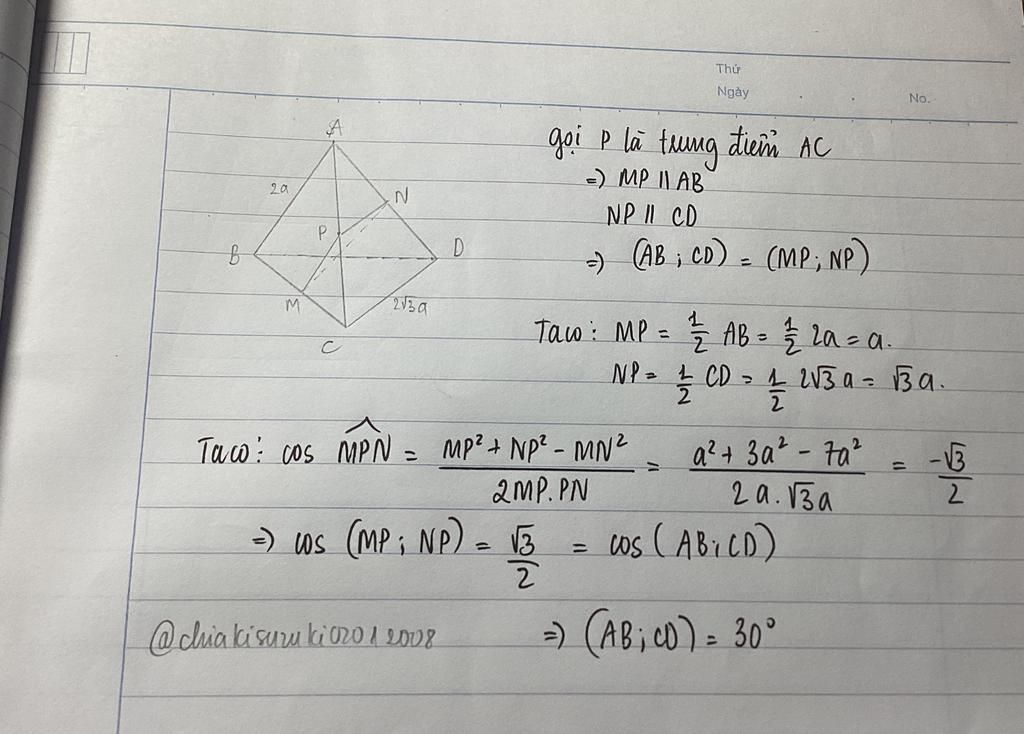 Thứ
Ngày . . No.
A
2a
N
P
B
D
M
2√3a
C
gọi P là trung điểm AC
=) MP || AB
NP || CD
=) (AB ; CD) = (MP ; NP)
Taco : MP = 1/2 AB = 1/2 2a = a.
NP = 1/2 CD = 1/2 2√3 a = √3 a.
Taco : cos MPN̂ = (MP² + NP² - MN²)/(2MP.PN) = (a² + 3a² - 7a²)/(2a.√3a) = -√3/2
=) cos (MP ; NP) = √3/2 = cos (AB ; CD)
@chiakisuzuki02012008
=) (AB ; CD) = 30°